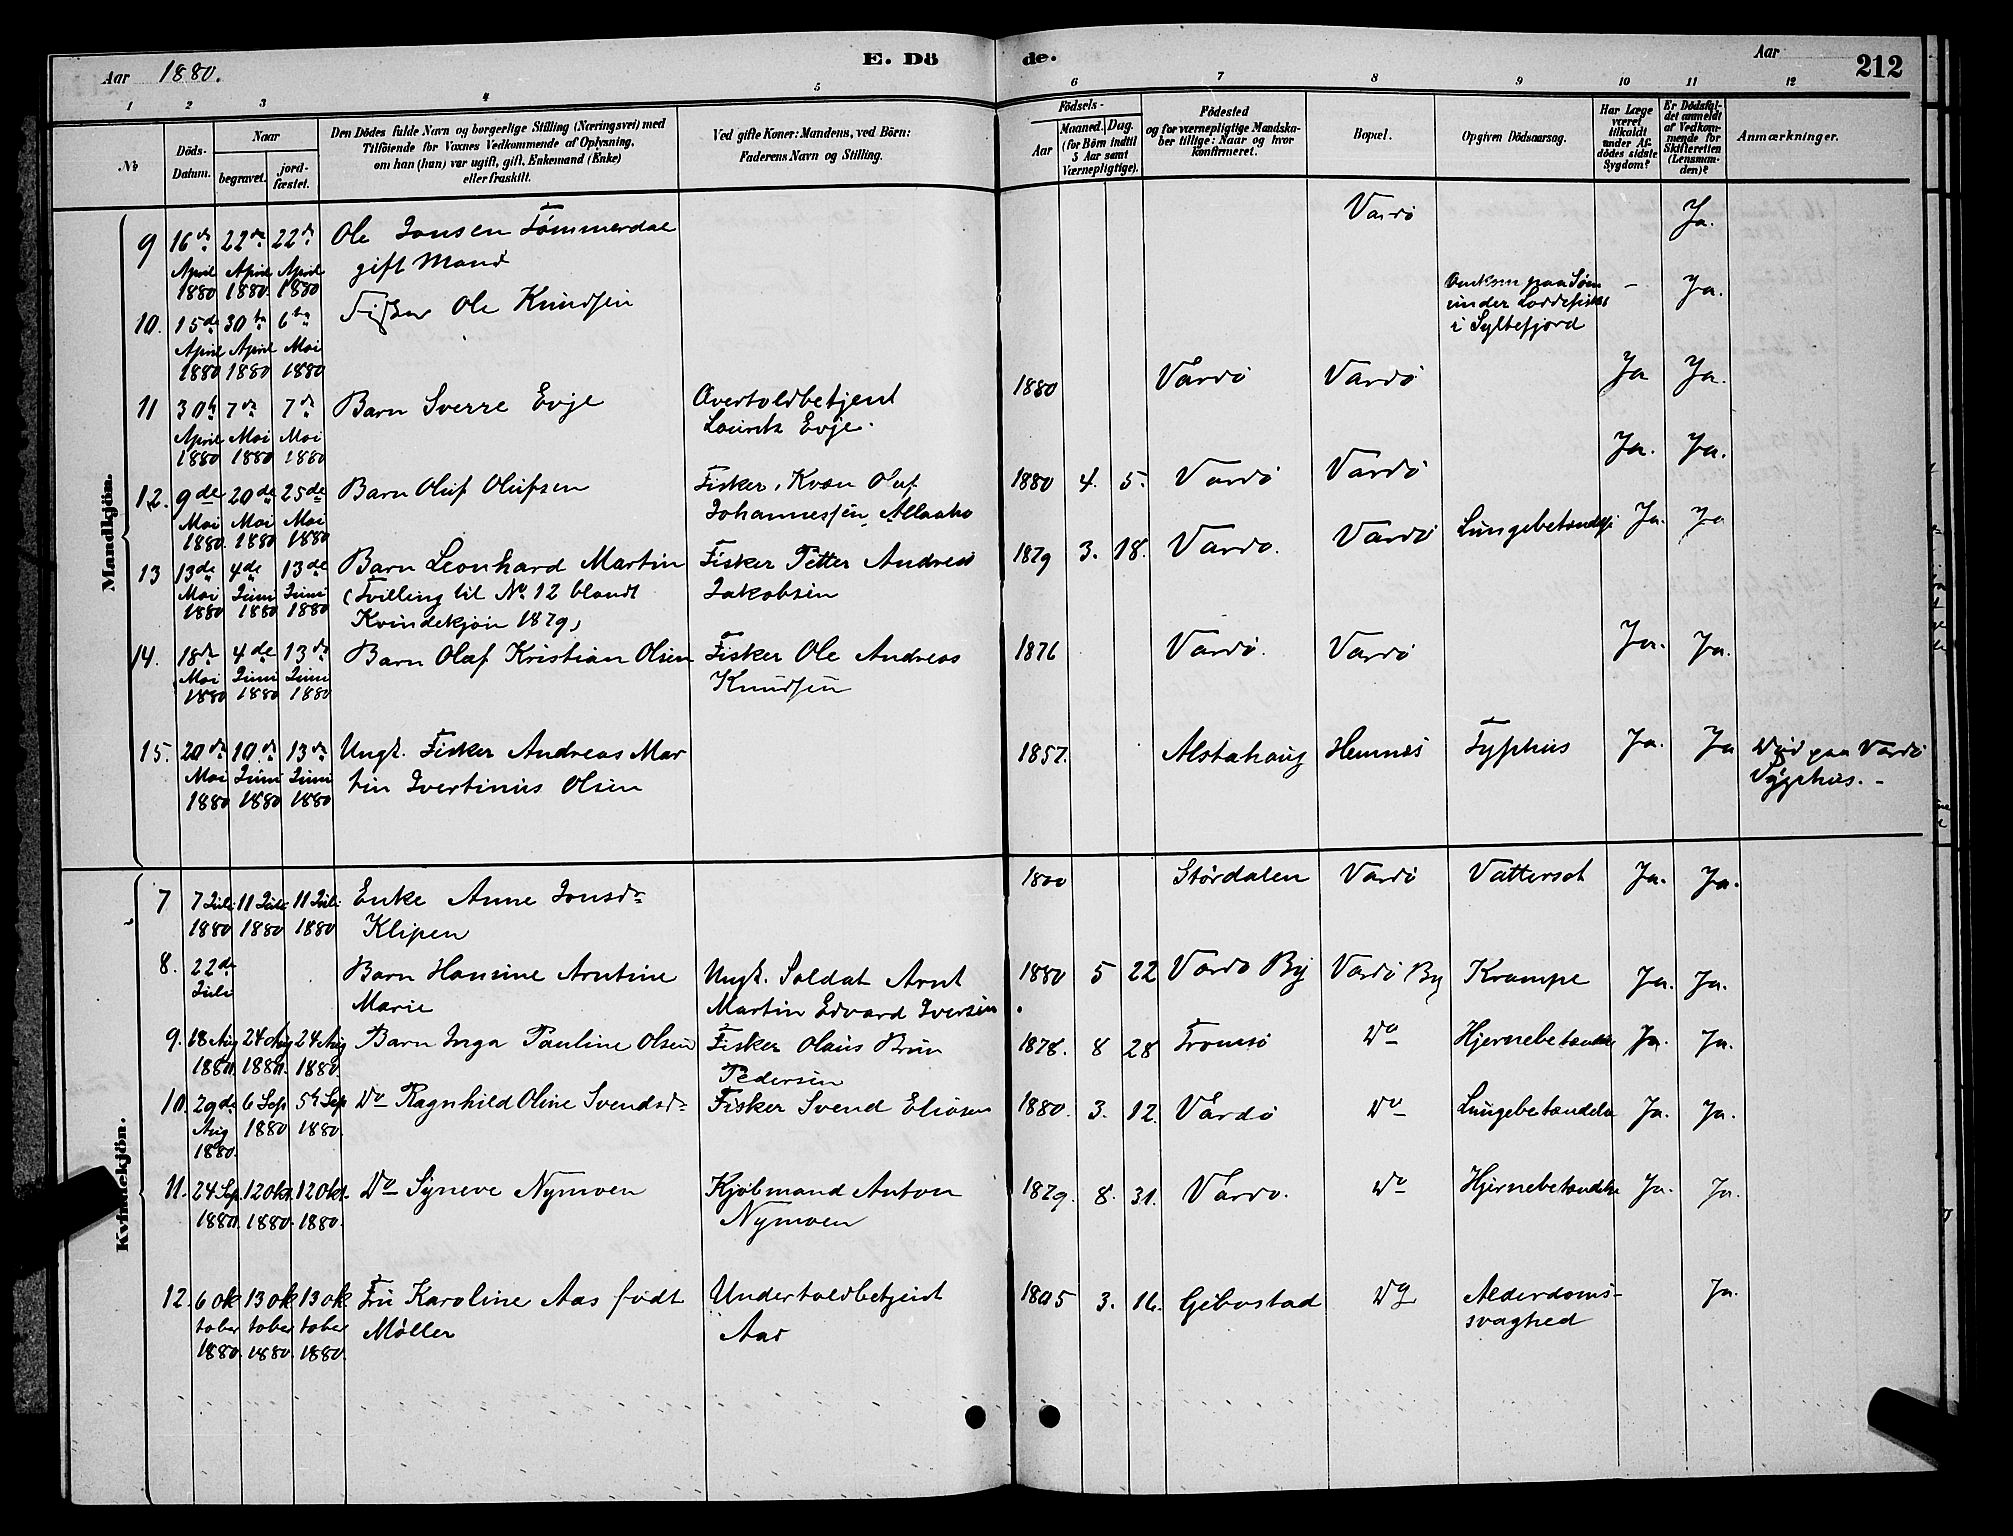 Aar 1880.
E. Dö
de.
Aar
212
1 2 3 4 5
6 7 8 9 10 11 12
No
Döds-
Datum.
Naar
begravet.
jord-
fæstet.
Den Dödes fulde Navn og borgerlige Stilling (Næringsvei) med
Tilföiende for Voxnes Vedkommende af Oplysning,
om han (hun) var ugift, gift, Enkemand (Enke)
eller fraskilt.
Ved gifte Koner: Mandens, ved Börn:
Faderens Navn og Stilling.
Födsels-
Aar
Maaned. Dag.
(for Börn indtil
5 Aar samt
Værnepligtige).
Födested
og for værnepligtige Mandska-
ber tillige: Naar og hvor
konfirmeret.
Bopæl.
Opgiven Dödsaarsag.
Har Læge
været
tilkaldt
under Af-
dödes sidste
Sygdom?
Er Dödsfal-
det anmeldt
af Vedkom-
mende for
Skifteretten
(Lensman-
den)?
Anmærkninger.
Mandkjön.
9 16de 22de 22de Ole Jonsen Tömmerdal Vardö Ja.
April April April gift Mand
1880 1880. 1880
10. 15de 30te 6te Fisker Ole Knudsen - Ja.
under
i Syltefjord
April April Mai
1880 1880 1880
11 30te 7de 7de Barn Sverre Evje Overtoldbetjent 1880 Vardö Vardö Ja Ja.
April Mai Mai Lauritz Evje.
1880 1880 1880
12. 9de 20de 25de Barn Oluf Olufsen Fisker, Kvæn Oluf 1880 4. 5. Vardö Vardö Ja. Ja.
Mai Mai Mai Johannessen
1880. 1880 1880
13 13de 4de 13de Barn Leonhard Martin Fisker Petter Andreas 1879 3. 18. Vardö. Vardö Lungebetændelse Ja. Ja
Mai Juni Juni (Tvilling til No 12 blandt Jakobsen
1880 1880 1880 Kvindekjön 1879)
14. 18de 4de 13de Barn Olaf Kristian Olsen Fisker Ole Andreas 1876 Vardö. Vardö Ja. Ja.
Mai Juni Juni Knudsen
1880 1880 1880
15. 20de 10de 13de Ungk. Fisker Andreas Mar 1857. Alstahaug Hemnæs Typhus Ja. Ja Död paa Vardö
Mai Juni Juni tin Ivertinus Olsen
1880 1880 1880
Kvindekjön.
7 7 Juli 11 Juli 11 Juli Enke Anne Jonsdr 1800 Stördalen Vardö Vattersot Ja. Ja.
1880 1880 1880 Klipen
8. 22de Barn Hansine Arntine Ungk. Soldat Arnt 1880 5 22 Vardö By Vardö By Krampe Ja. Ja.
Juli Marie Martin Edvard Iversen
9. 18 Aug 24 Aug 24 Aug Barn Inga Pauline Olsen Fisker Olaus Brun 1878. 8 28 Tromsö Do Hjernebetændelse Ja. Ja.
1880. 1880. 1880. Pedersen
10. 29de 6 Sep 5te Sep Do Ragnhild Oline Svendsdr Fisker Svend Eliasen 1880. 3. 12. Vardö Do Lungebetændelse Ja. Ja.
Aug 1880 1880.
1880.
11. 24 Sep 12 Okt. 12 Okt. Do Syneve Nymoen Kjöbmand Anton 1879. 8. 31. Vardö. Do Hjernebetændelse Ja. Ja.
1880. 1880. 1880. Nymoen
12. 6 Ok 13 Ok 13 Ok Fru Karoline Aas født Undertoldbetjent 1805 3. 16. Gibostad Do Alderdoms- Ja.
tober tober tober Møller Aas svaghed
1880. 1880. 1880.